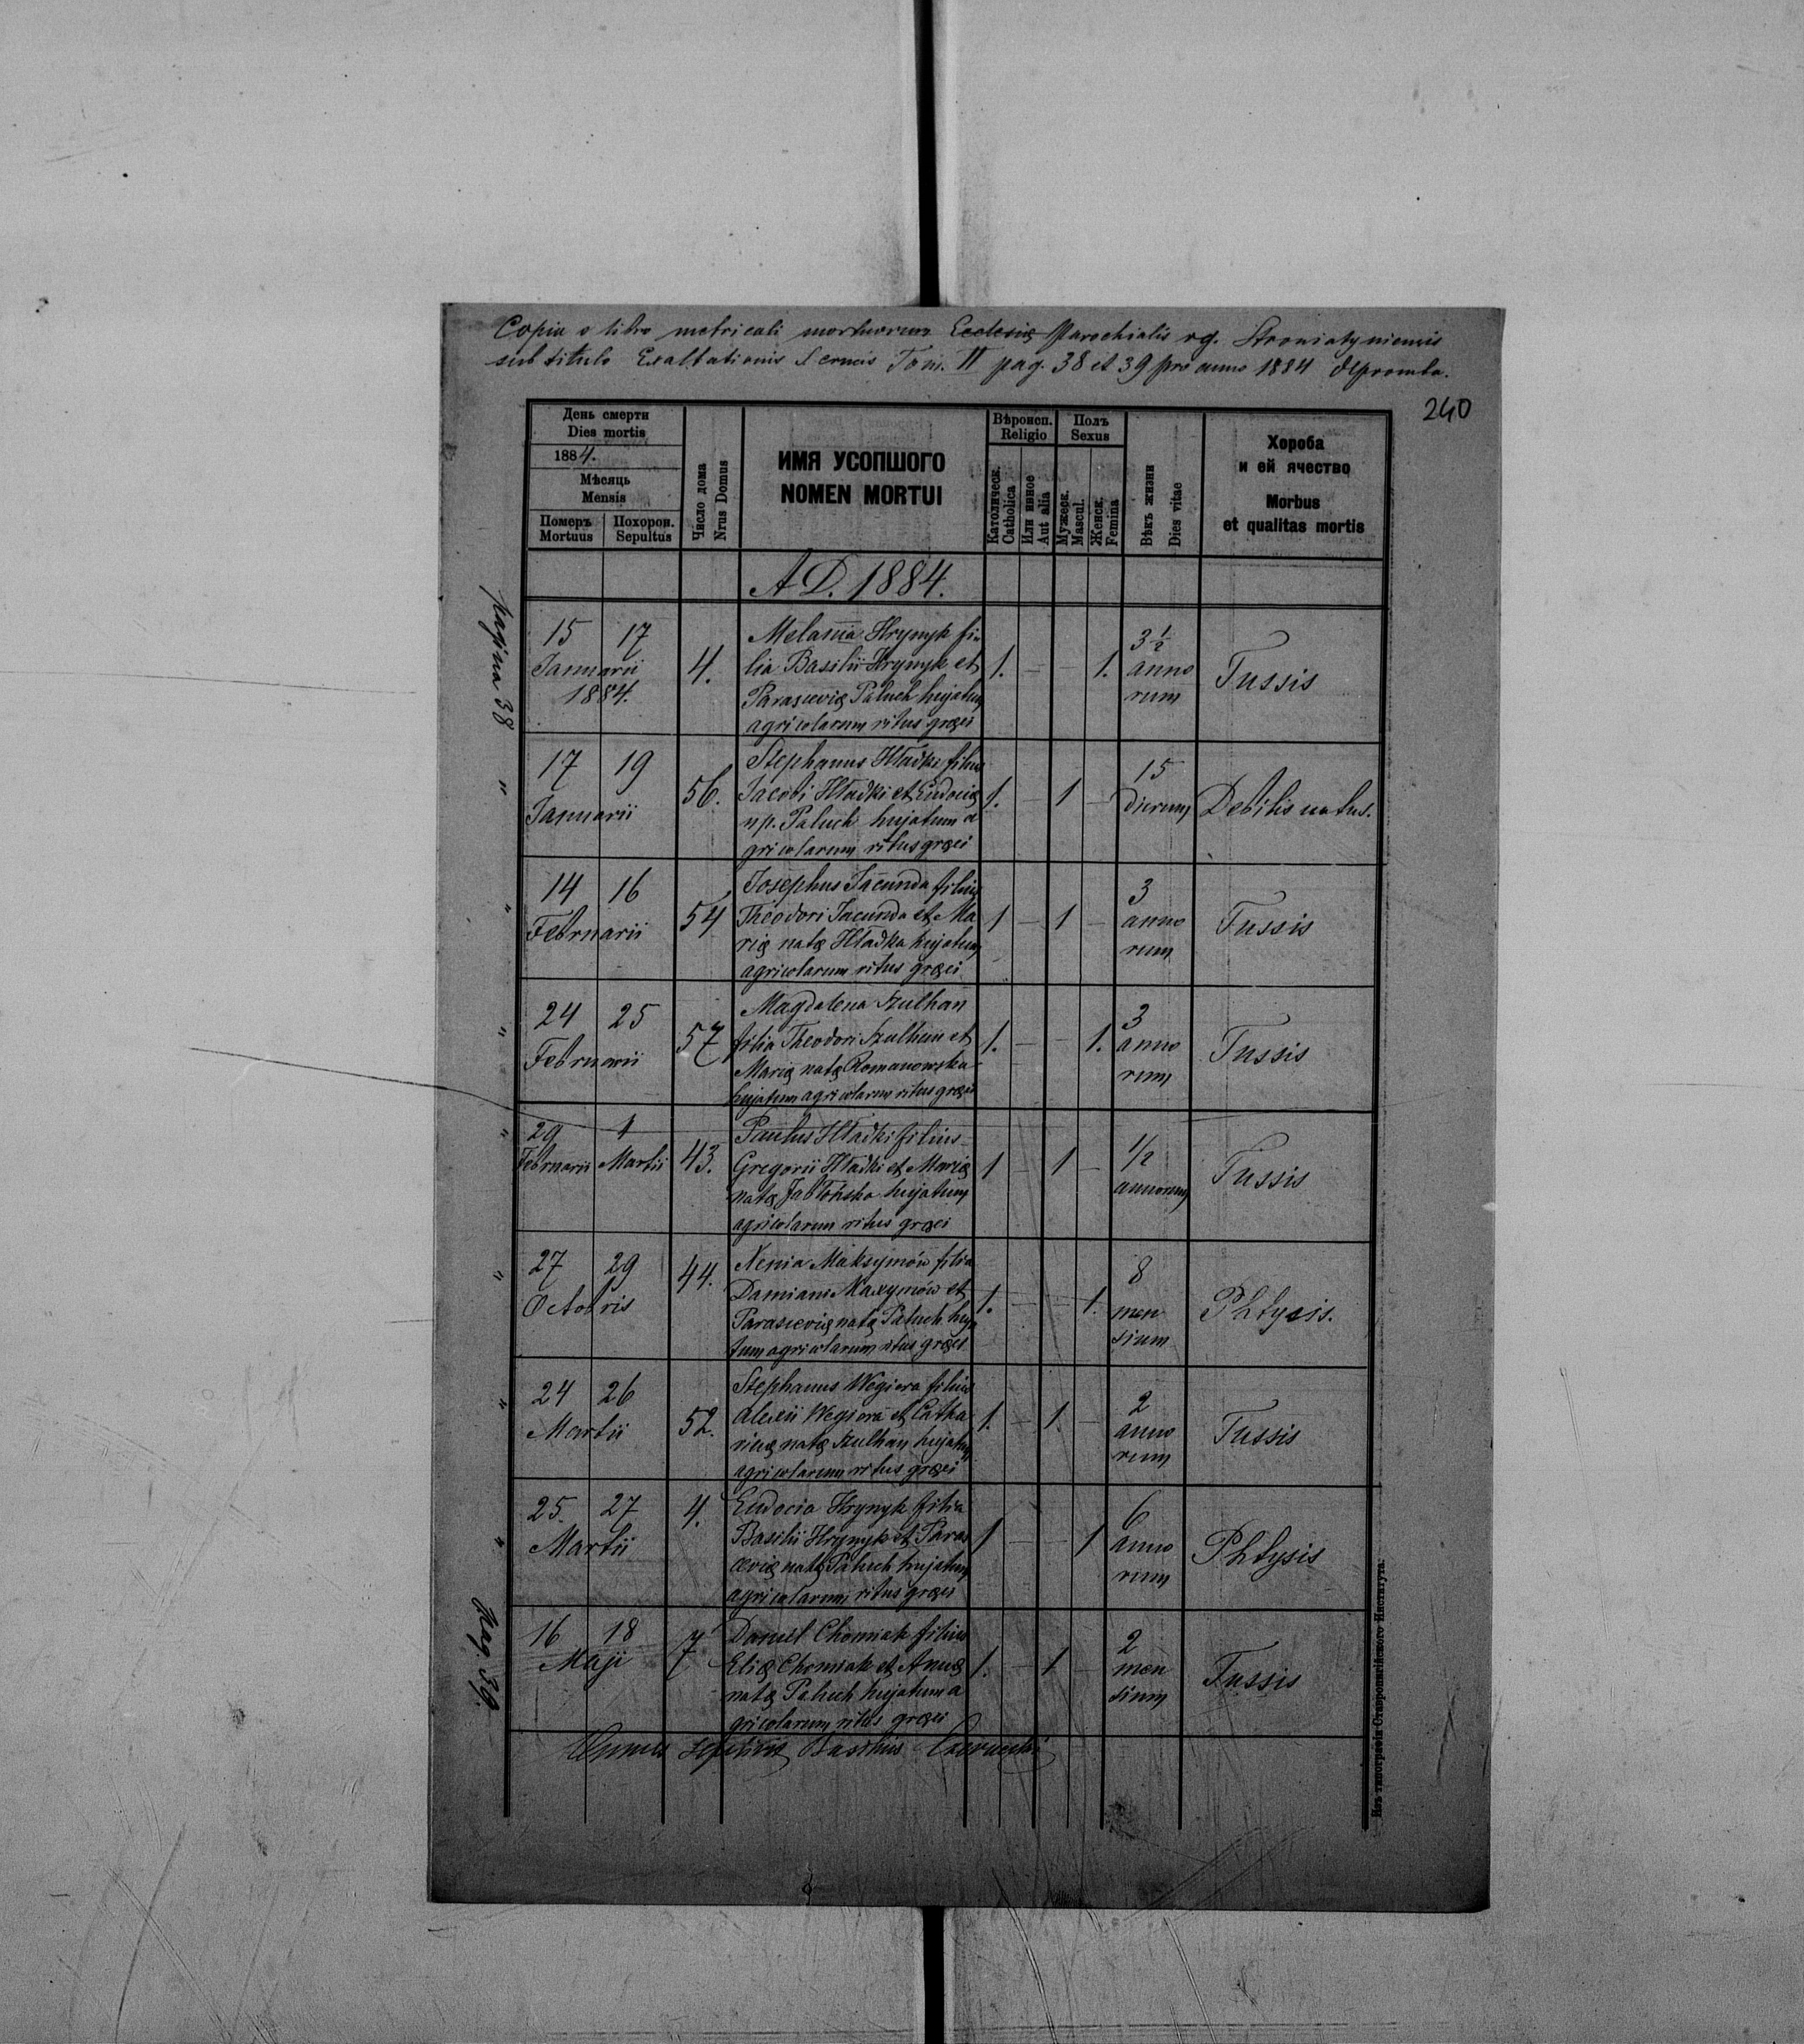 Copia e libro metricali mortuorum Ecclesiæ Parochialis r. g. Stroniatyniensis
sub titulo Exaltationis S. crucis Tom. II pag. 38 et 39 pro anno 1884 deprompta.
240
День смерти
Dies mortis
1884.
Мѣсяць
Mensis
Померъ
Mortuus
Похорон.
Sepultus
Число дома
Nrus Domus
ИМЯ УСОПШОГО
NOMEN MORTUI
Вѣроисп.
Religio
Католическ.
Catholica
Или инное
Aut alia
Полъ
Sexus
Мужеск.
Mascul.
Женск.
Femina
Вѣкъ жизни
Dies vitae
Хороба
и ей ячество
Morbus
et qualitas mortis
A D. 1884.
pagina 38
15 17
Januarii
1884.
4.
Melania Hrynyk fi-
lia Basilii Hrynyk et
Parascviæ Paluch hujatum
agricolarum ritus græci
1. — — 1.
3 1/2
anno
rum
Tussis
"
17 19
Januarii
56.
Stephanus Hładki filius
Jacobi Hładki et Eudociæ
n p. Paluch hujatum a
gricolarum ritus græci
1. — 1 —
15
dierum
Debilis natus.
"
14 16
Februarii
54
Josephus Jacunda filius
Theodori Jacunda et Ma
riæ natæ Hładka hujatum
agricolarum ritus græci
1 — 1 —
3
anno
rum
Tussis
"
24 25
Februarii
57
Magdalena Szulhan
filia Theodori Szulhan et
Mariæ natæ Romanowska
hujatum agricolarum ritus græci
1. — — 1.
3
anno
rum
Tussis
"
29 1
Februarii Martii
43.
Paulus Hładki filius
Gregorii Hładki et Mariæ
natæ Jabłońska hujatum
agricolarum ritus græci
1 — 1 —
1/2
annorum
Tussis
"
27 29
Octobris
44.
Xenia Maksymów filia
Damiani Maxymów et
Parascviæ natæ Paluch huja
tum agricolarum ritus græci
1. — — 1.
8
men
sium
Phtysis.
"
24 26
Martii
52.
Stephanus Wegiera filius
Alexii Wegiera et Catha
rinæ natæ Szulhan hujatum
agricolarum ritus græci
1. — 1. —
2
anno
rum
Tussis
"
25. 27
Martii
4.
Eudocia Hrynyk filia
Basilii Hrynyk et Paras
cviæ natæ Paluch hujatum
agricolarum ritus græci
1 — — 1
6
anno
rum
Phtysis
Pag. 39.
16 18
Maji
7
Daniel Chomiak filius
Eliæ Chomiak et Annæ
natæ Paluch hujatum a
gricolarum ritus græci
1. — 1 —
2
men
sium
Tussis
Basilius
Изъ типографіи Ставропигійского Института.